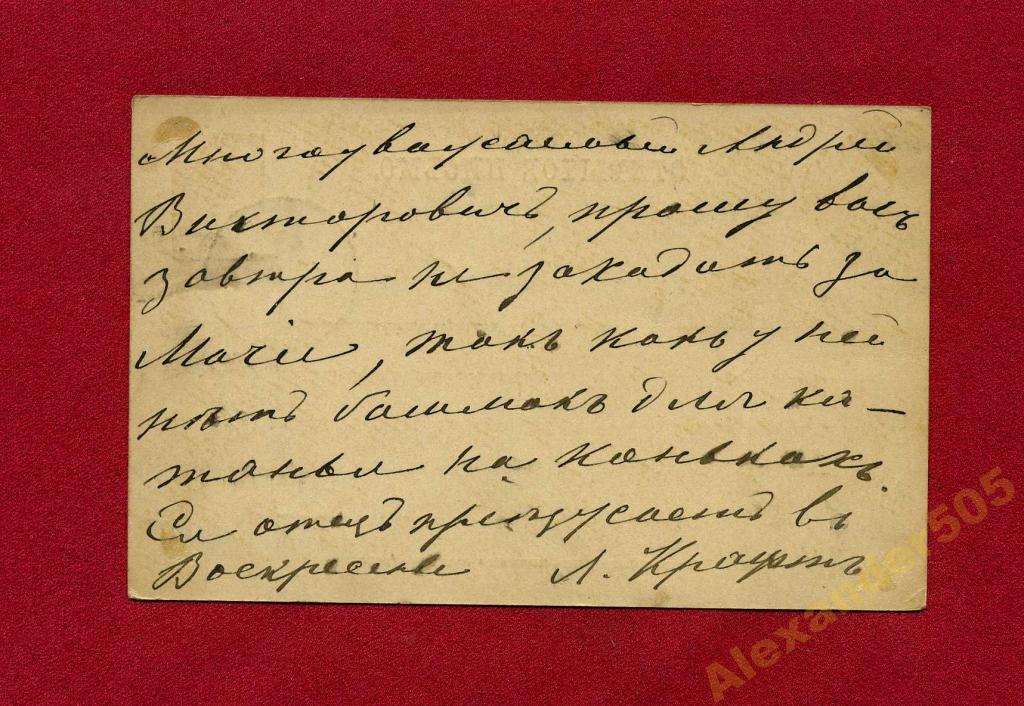 Многоуважаемый Андрей
Викторовичъ, прошу васъ
завтра не заходить за
такъ какъ у ней
нѣтъ башмакъ для ка-
танья на конькахъ.
Ея отецъ въ
Воскресенье Л. Крафтъ
Alexander505